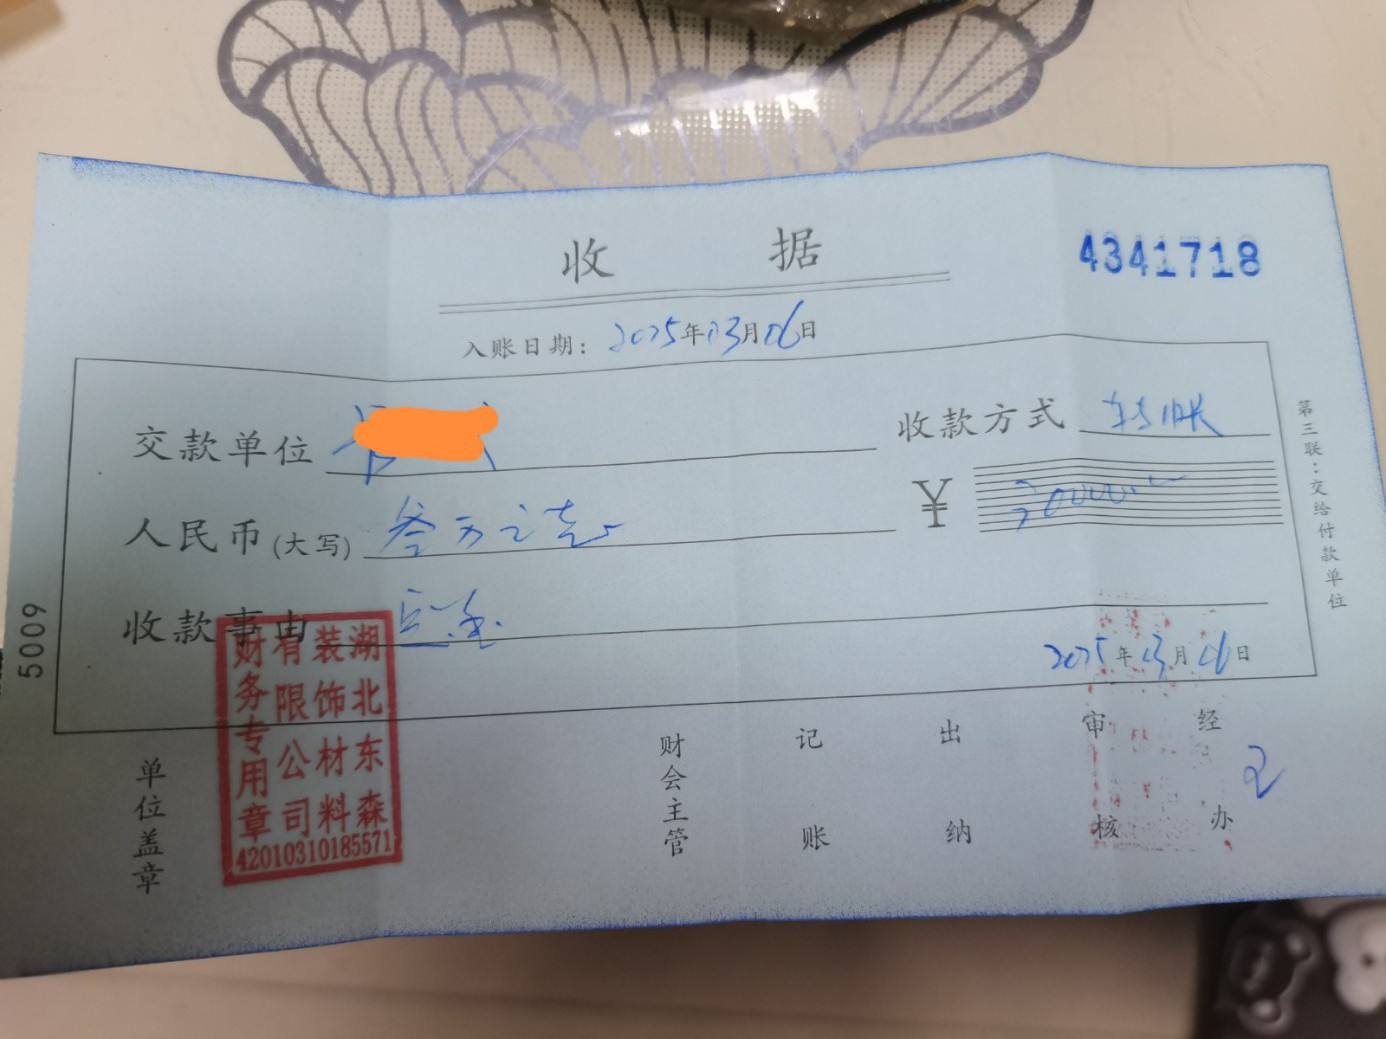 收据
4341718
入账日期：2025年03月06日
交款单位
收款方式 转帐
人民币(大写) 叁万元
¥ 30000.00
收款事由
2025年03月06日
第三联：交给付款单位
5009
单位盖章
湖北东森
装饰材料
有限公司
财务专用章
42010310185571
财会主管
记账
出纳
审核
经办